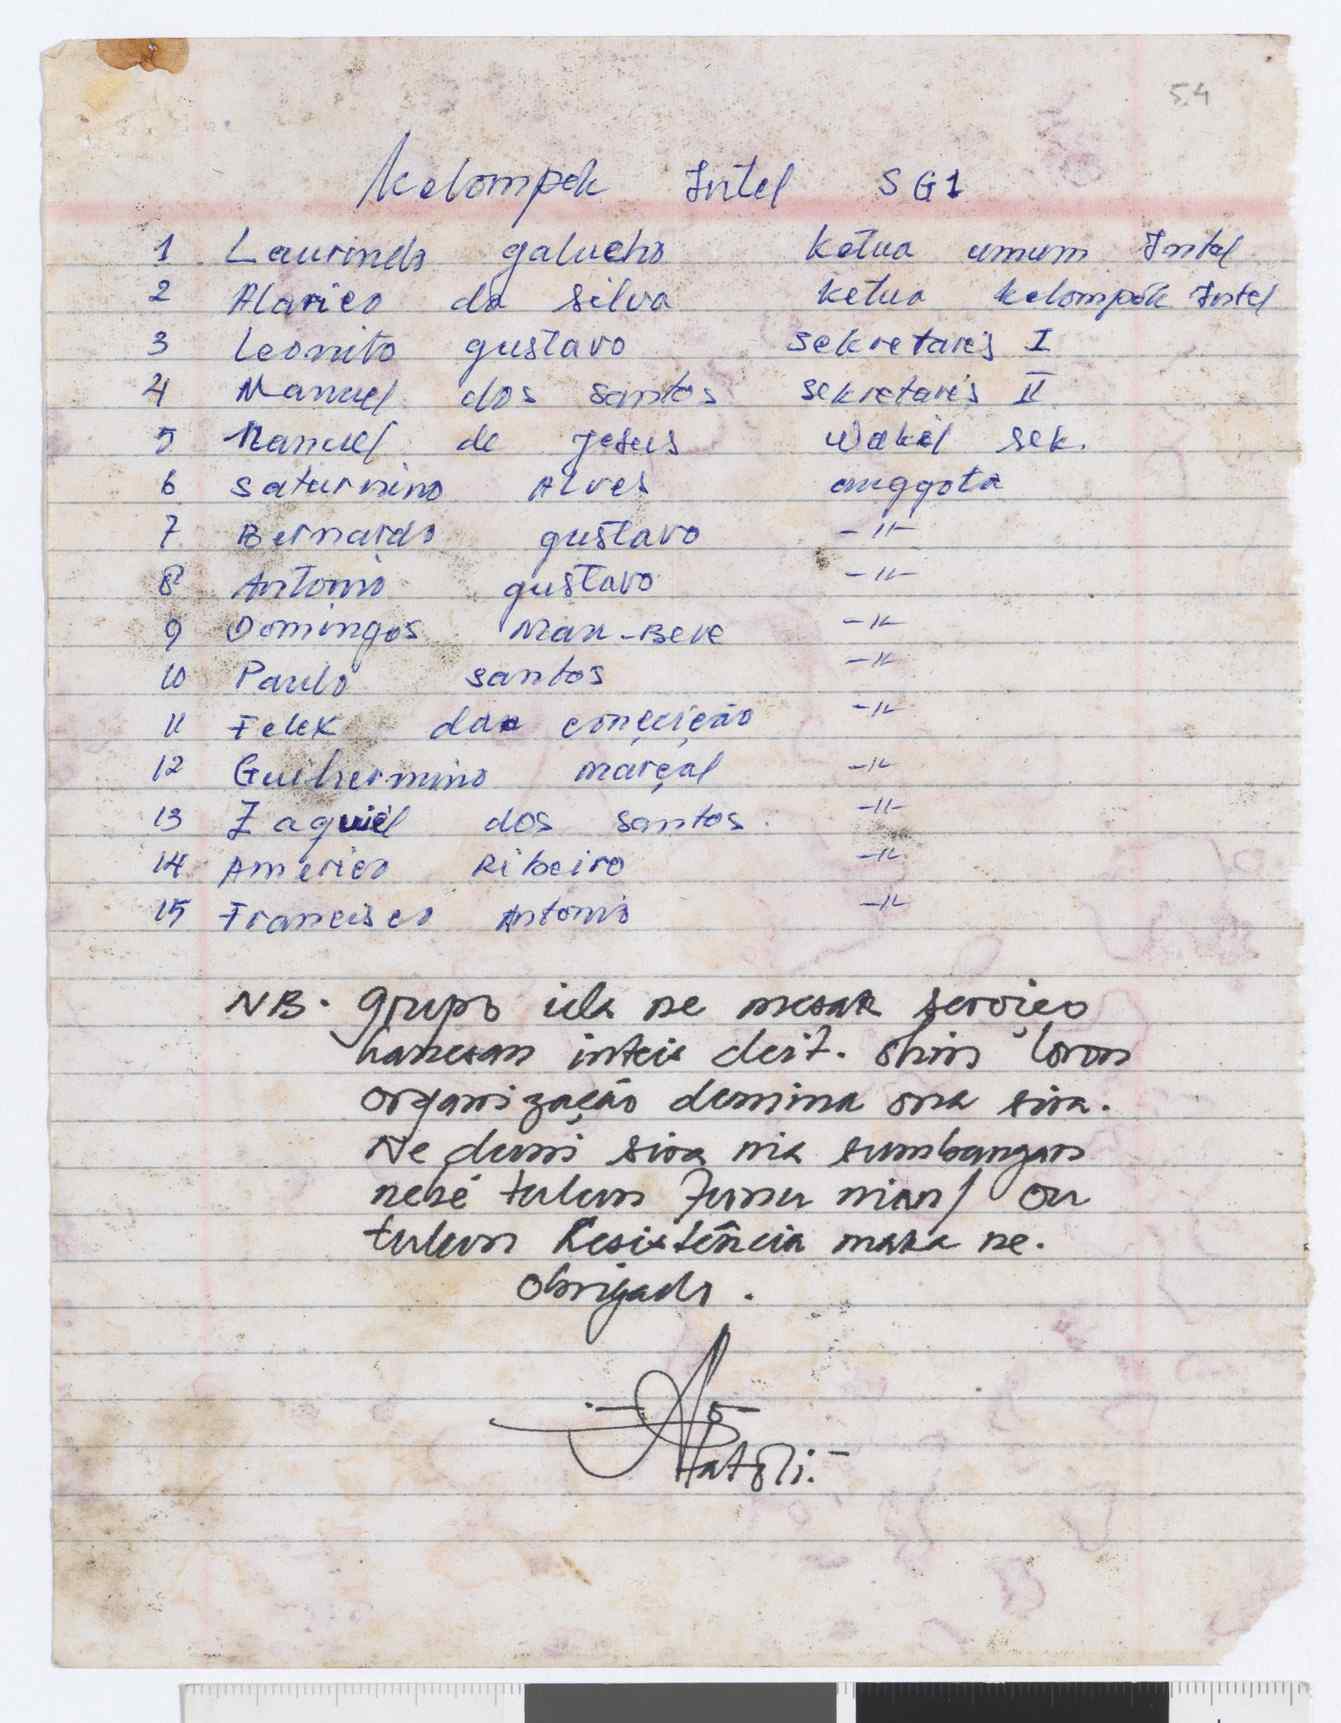 54
Kelompok Intel SG1
1 Laurindo galucho Ketua umum Intel
2 Alarico da silva Ketua kelompok Intel
3 Leonito gustavo Sekretaris I
4 Manuel dos santos sekretaris II
5 Manuel de Jesus Wakil sek.
6 Saturnino Alves anggota
7 Bernardo gustavo -"-
8 Antonio gustavo -"-
9 Domingos Mau-Bere -"-
10 Paulo santos -"-
11 Felix da conçeição -"-
12 Guilhermino marçal -"-
13 Zaquiel dos santos. -"-
14 Americo Ribeiro -"-
15 Francisco Antonio -"-
NB. grupo ida ne mesak serviço
hanesan inteis deit. ohin loron
organização demina ona sira.
Ne duni sira nia sumbangan
nebé tulun Funu nian/ ou
tulun Resistência maka ne.
Obrigado.
Hatoli.-